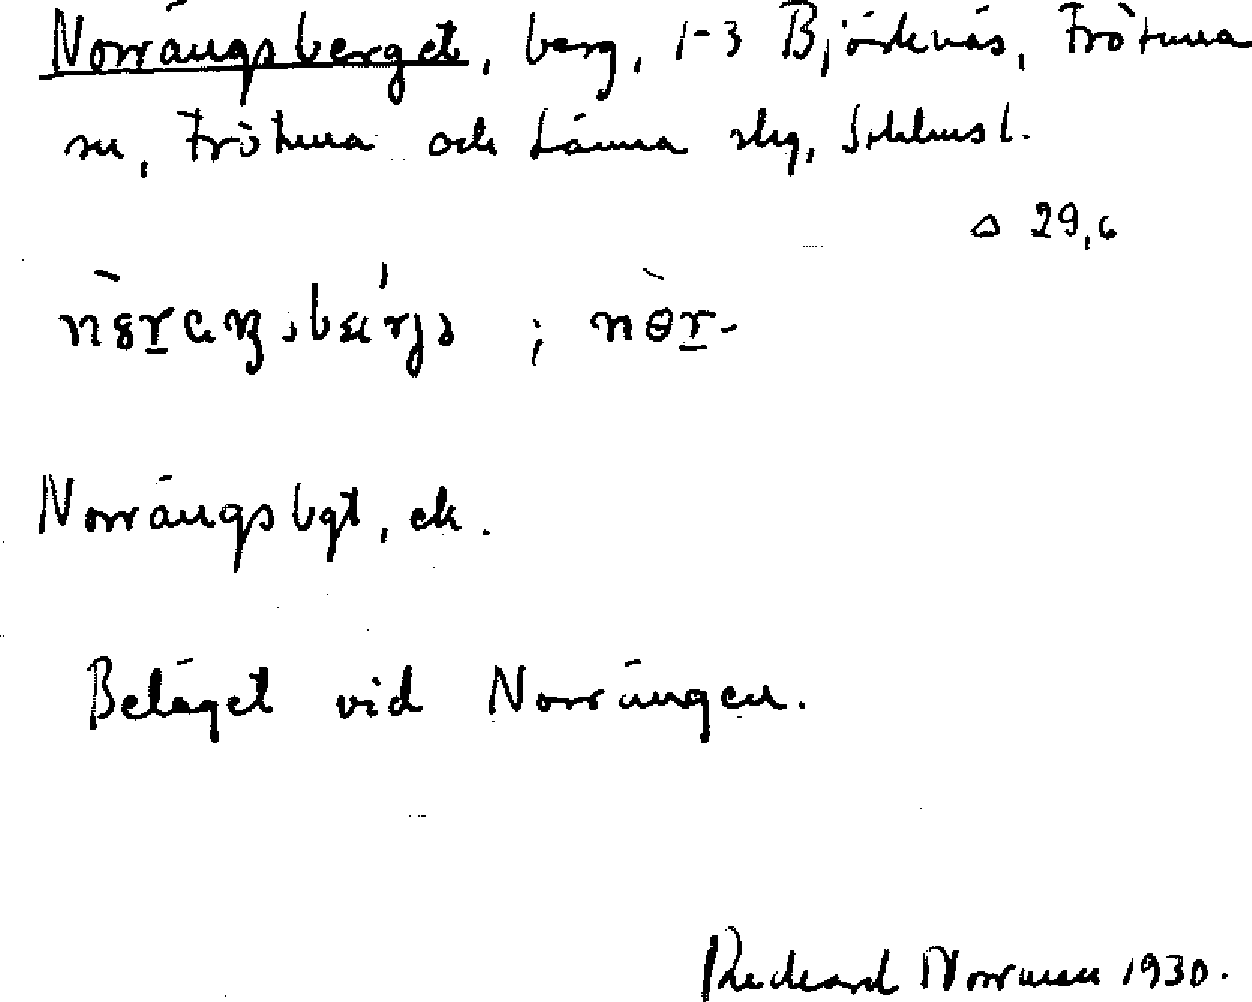 Norrängsberget, berg, 1-3 Björknäs, Frötuna
sn, Frötuna och Länna slg, Sthlms l.
△ 29,6
Norrängsbgt, ek.
Beläget vid Norrängen.
Rickard Norrman 1930.